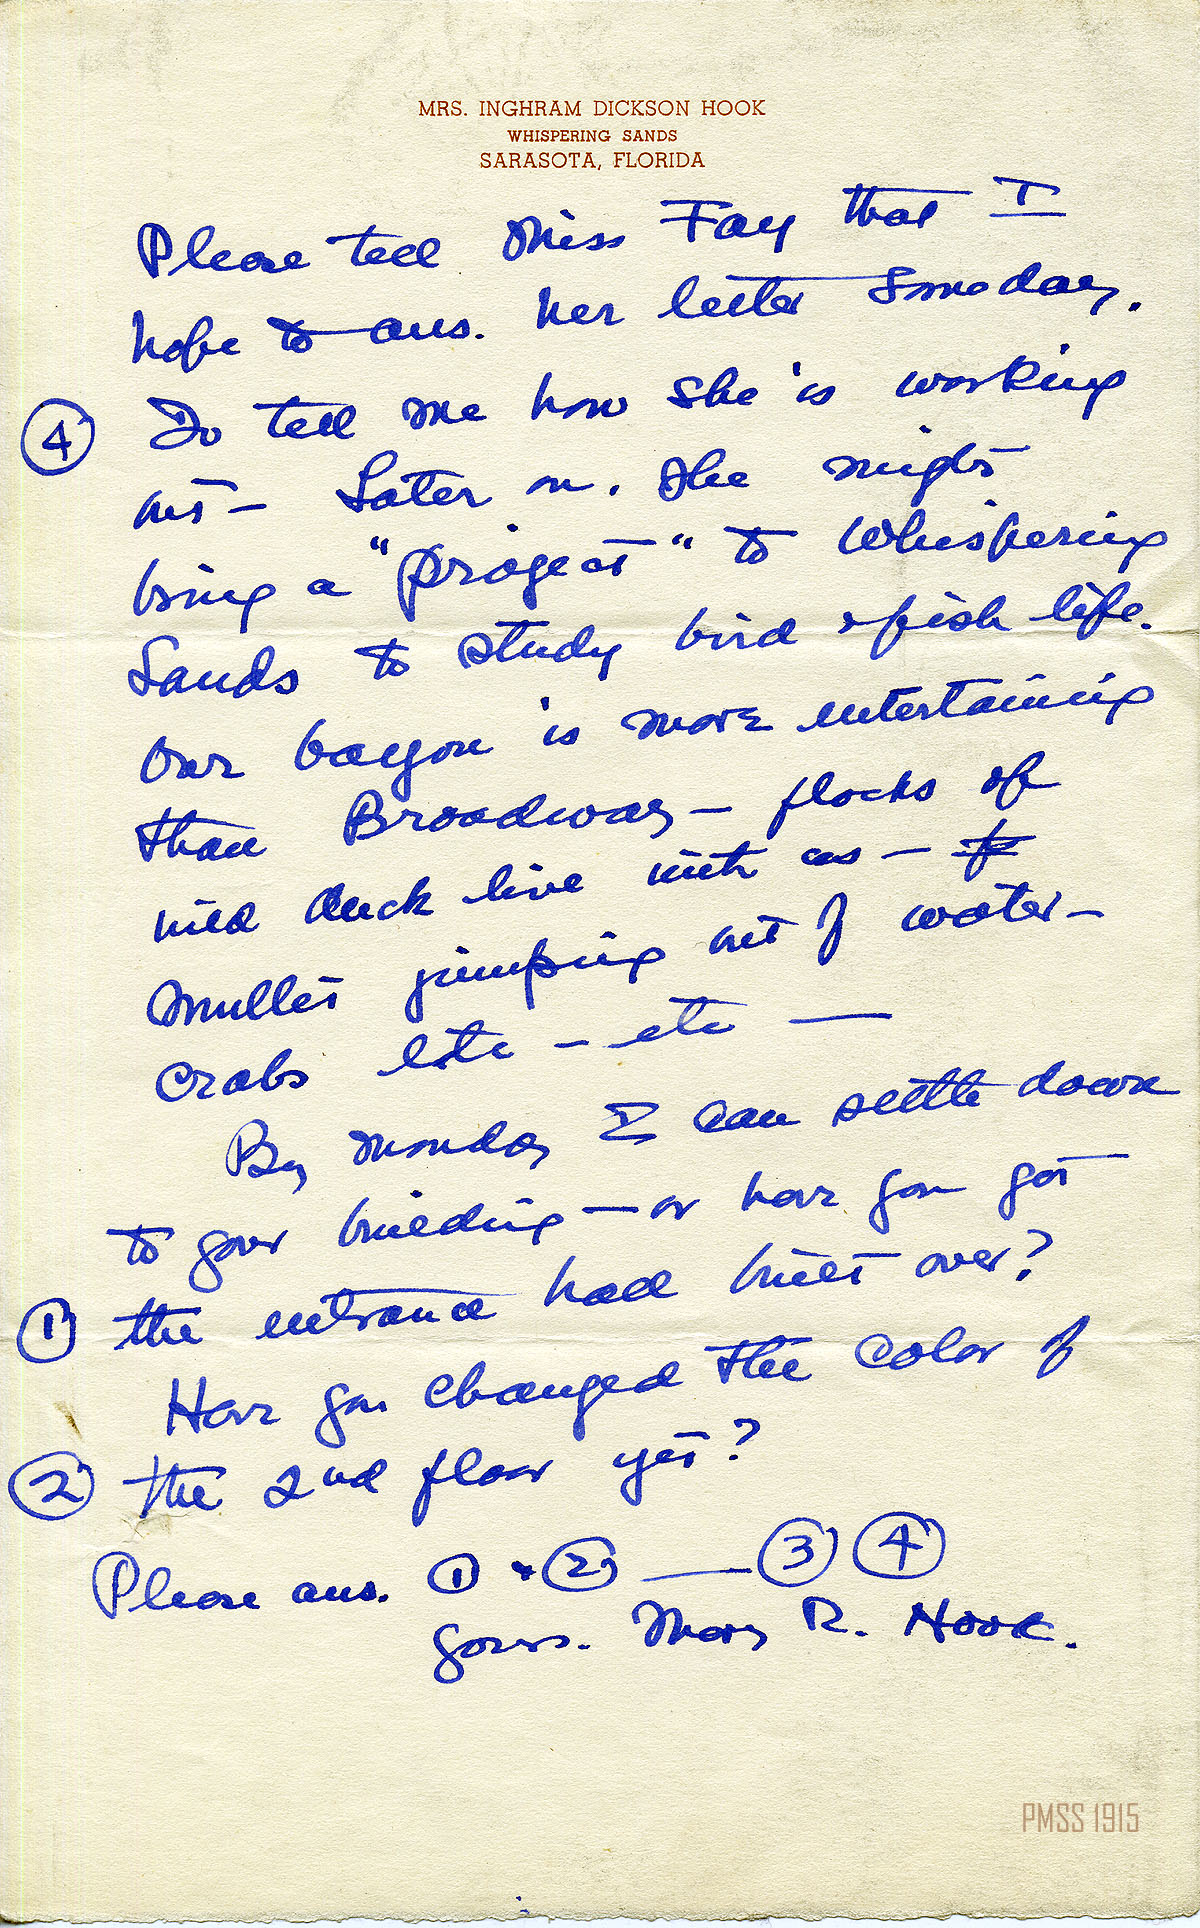 MRS. INGHRAM DICKSON HOOK
WHISPERING SANDS
SARASOTA, FLORIDA
Please tell Miss Fay that I
hope to ans. her letter someday.
④ Do tell me how she is working
out – Later on. She might
bring a "project" to Whispering
Sands to study bird & fish life.
Our bayou is more entertaining
than Broadway – flocks of
wild duck live with us –
mullet jumping out of water –
crabs etc – etc —
By Monday I can settle down
to your building – or have you got
① the entrance hall built over?
Have you changed the color of
② the 2nd floor yet?
Please ans. ① & ② — ③ ④
Yours. Mary R. Hook.
PMSS 1915